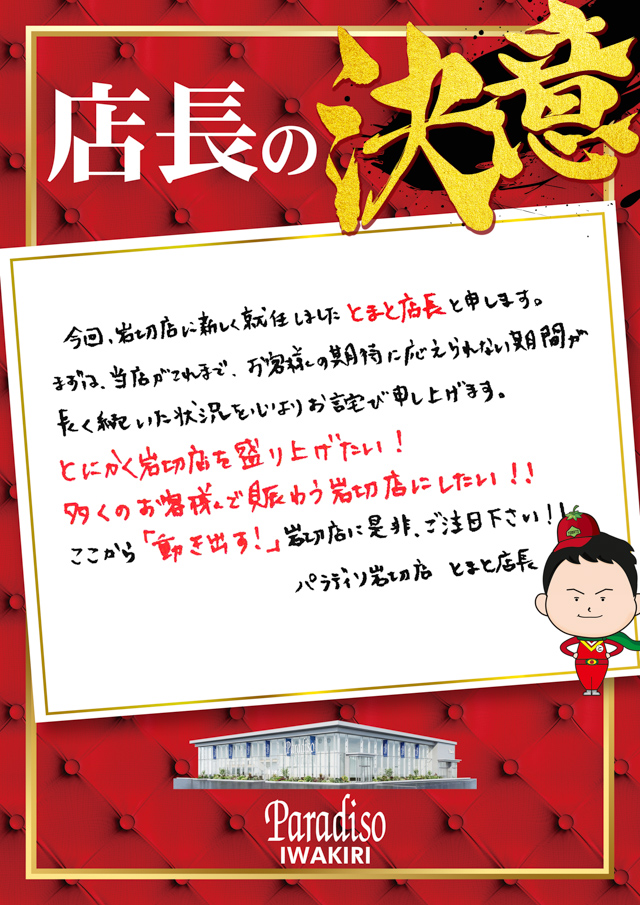 店長の決意
今回、岩切店に新しく就任しましたとまと店長と申します。
まずは、当店がこれまで、お客様の期待に応えられない期間が
長く続いた状況を心よりお詫び申し上げます。
とにかく岩切店を盛り上げたい！
多くのお客様で賑わう岩切店にしたい！！
ここから「動き出す！」岩切店に是非、ご注目下さい！！
パラディソ岩切店 とまと店長
Paradiso
Paradiso
IWAKIRI